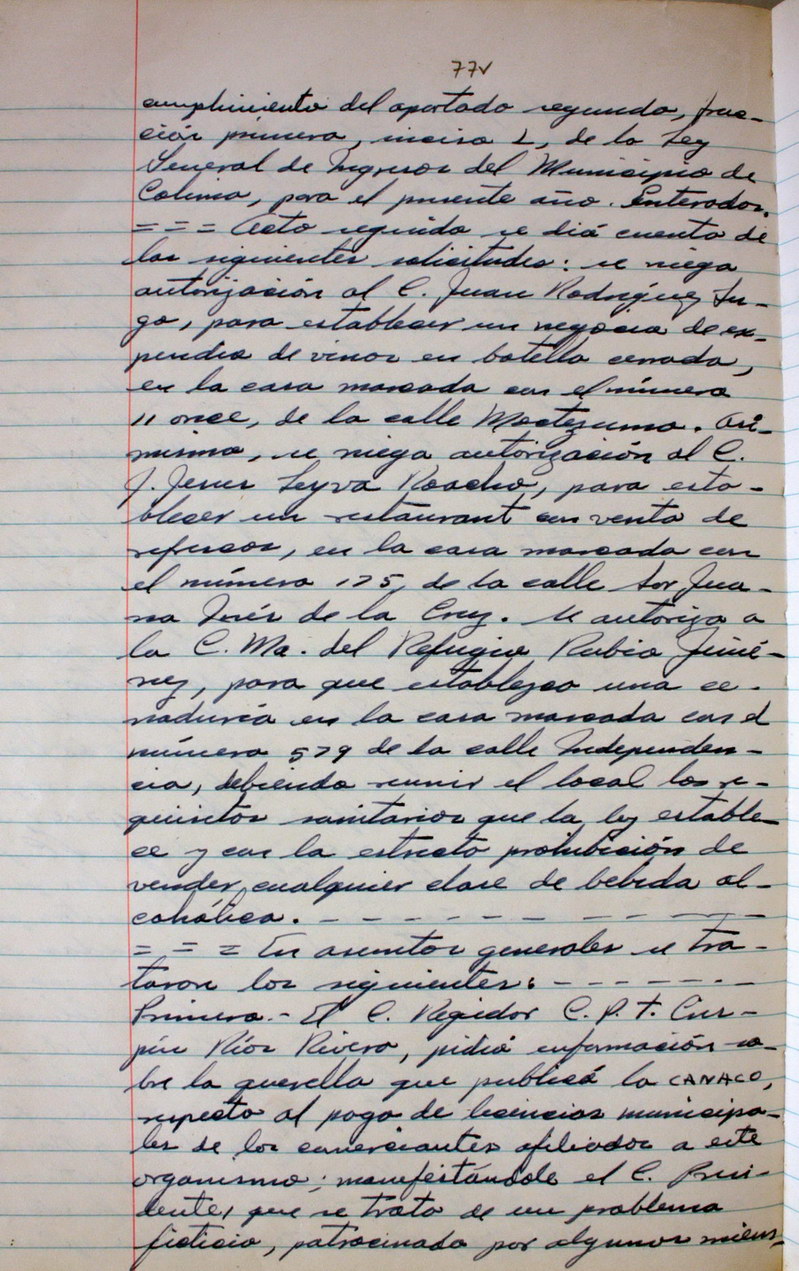 77v
cumplimiento del apartado segundo, frac-
ción primera, inciso 2, de la Ley
General de Ingresos del Municipio de
Colima, para el presente año. Enterados.
= = = Acto seguido se dió cuenta de
las siguientes solicitudes: se niega
autorización al C. Juan Rodríguez Lu-
go, para establecer un negocio de ex-
pendio de vinos en botella cerrada,
en la casa marcada con el número
11 once, de la calle Moctezuma. Asi-
mismo, se niega autorización al C.
J. Jesus Leyva Roacho, para esta-
blecer un restaurant con venta de
refrescos, en la casa marcada con
el número 175, de la calle Sor Jua-
na Inés de la Cruz. Se autoriza a
la C. Ma. del Refugio Rubio Jimé-
nez, para que establezca una ce-
naduría en la casa marcada con el
número 579 de la calle Independen-
cia, debiendo reunir el local los re-
quisitos sanitarios que la ley estable-
ce y con la estricta prohibición de
vender cualquier clase de bebida al-
cohólica. - - - - - - - - - -
= = = En asuntos generales se tra-
taron los siguientes: - - - - - - -
Primero.- El C. Regidor C.P.T. Cris-
pín Ríos Rivera, pidió información so-
bre la querella que publicó la CANACO,
respecto al pago de licencias municipa-
les de los comerciantes afiliados a este
organismo; manifestándole el C. Presi-
dente, que se trata de un problema
ficticio, patrocinado por algunos miem-